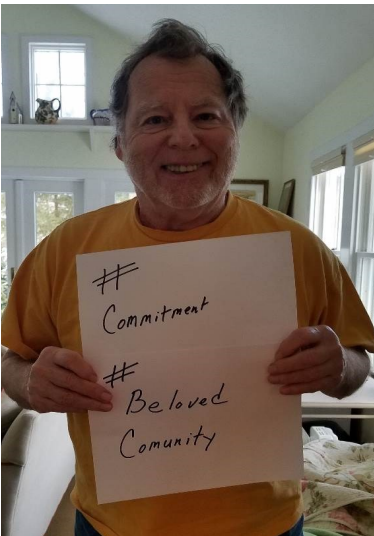 #
Commitment
#
Beloved
Comunity